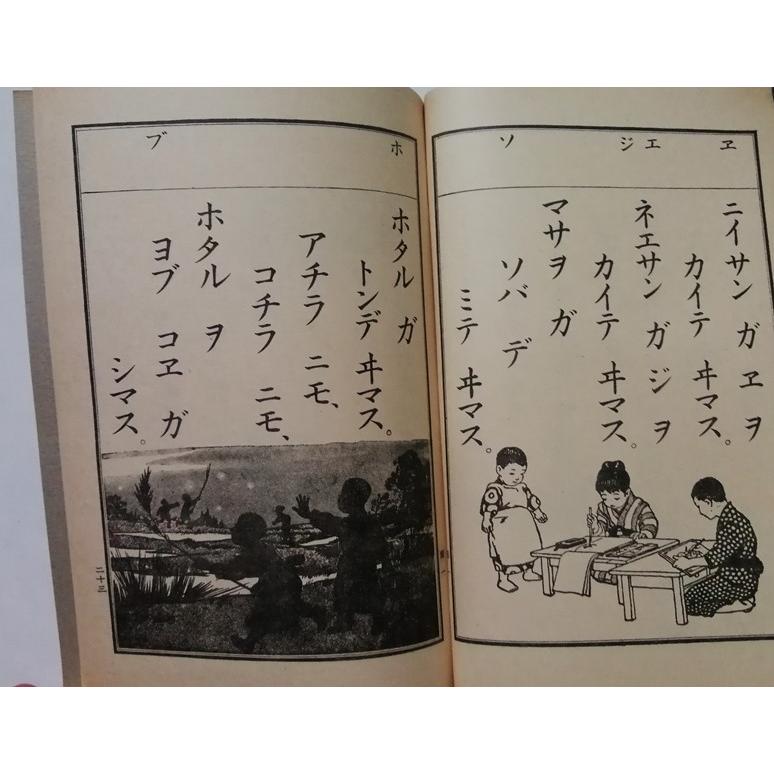 ヱ エ ジ ソ
ニイサン ガ ヱ ヲ
カイテ ヰマス。
ネエサン ガ ジ ヲ
カイテ ヰマス。
マサヲ ガ
ソバ デ
ミテ ヰマス。
ホ ブ
ホタル ガ
トンデ ヰマス。
アチラ ニモ、
コチラ ニモ、
ホタル ヲ
ヨブ コヱ ガ
シマス。
二十三